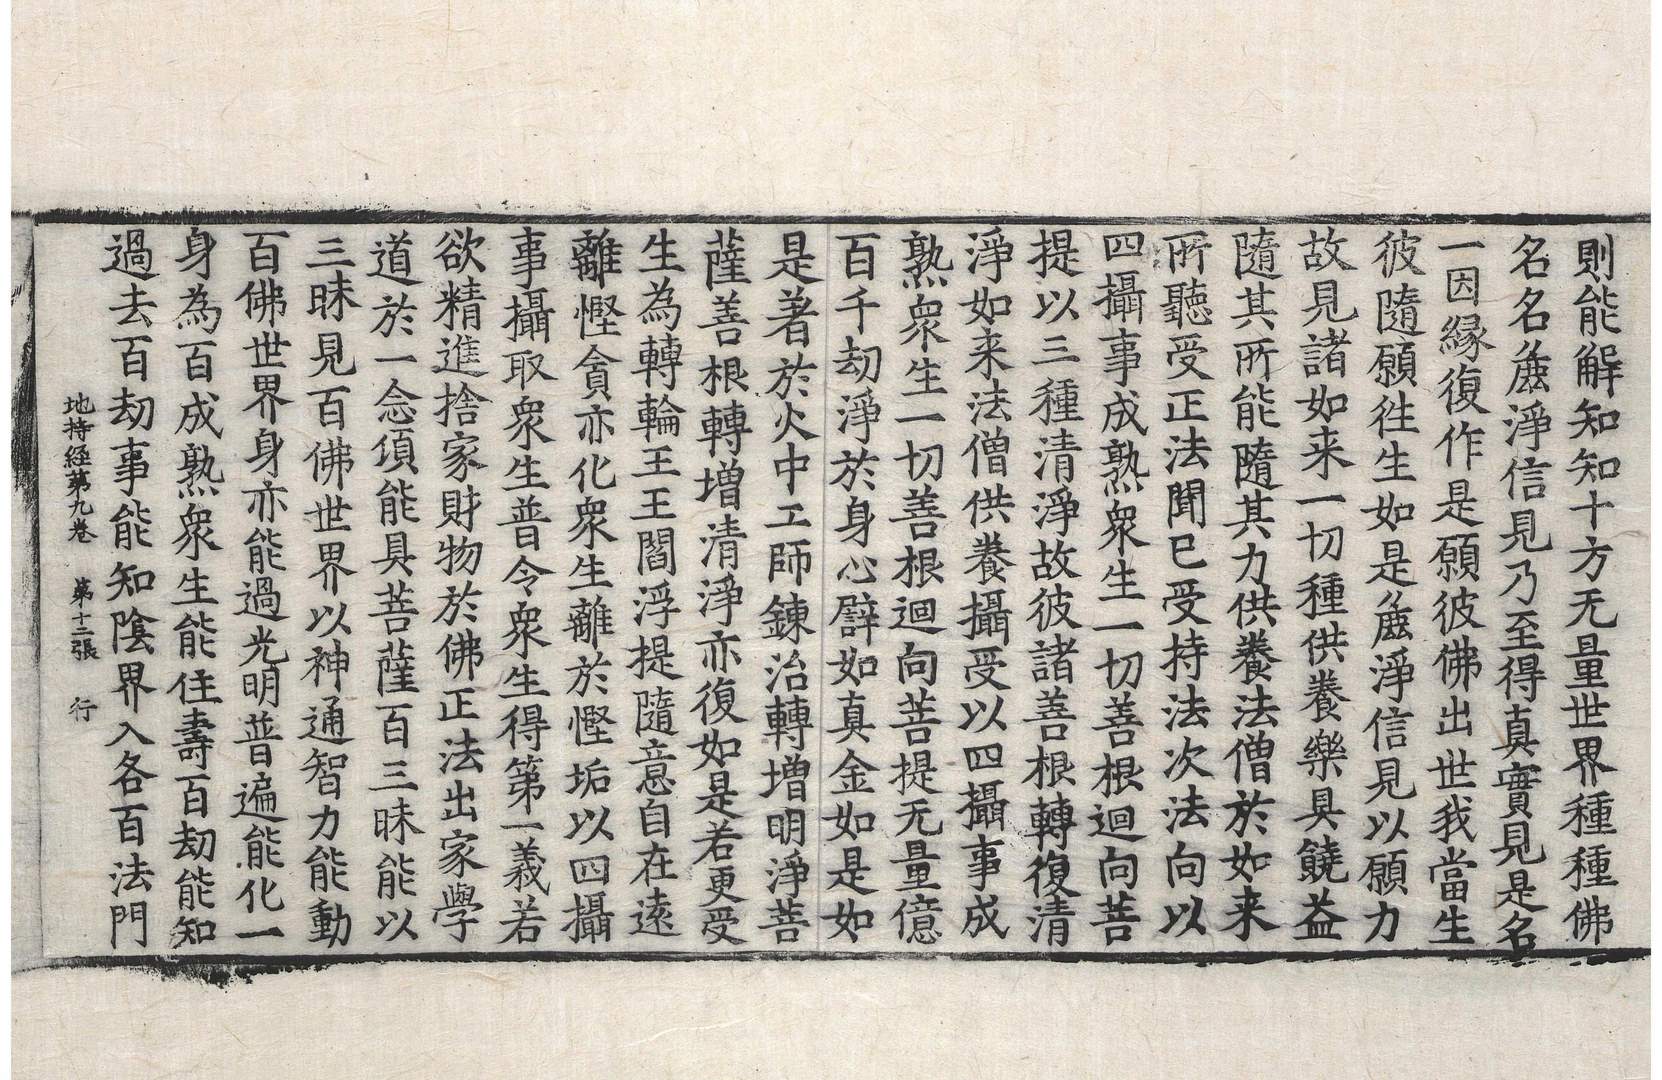 則能解知知十方无量世界種種佛
名名麁淨信見乃至得真實見是名
一因緣復作是願彼佛出世我當生
彼隨願往生如是麁淨信見以願力
故見諸如来一切種供養樂具饒益
隨其所能隨其力供養法僧於如来
所聽受正法聞已受持法次法向以
四攝事成熟衆生一切善根迴向菩
提以三種清淨故彼諸善根轉復清
淨如来法僧供養攝受以四攝事成
熟衆生一切善根迴向菩提无量億
百千劫淨於身心譬如真金如是如
是著於火中工師鍊治轉增明淨菩
薩善根轉增清淨亦復如是若更受
生為轉輪王王閻浮提隨意自在遠
離慳貪亦化衆生離於慳垢以四攝
事攝取衆生普令衆生得第一義若
欲精進捨家財物於佛正法出家學
道於一念頃能具菩薩百三昧能以
三昧見百佛世界以神通智力能動
百佛世界身亦能過光明普遍能化一
身為百成熟衆生能住壽百劫能知
過去百劫事能知陰界入各百法門
地持經第九卷 第十二張 行